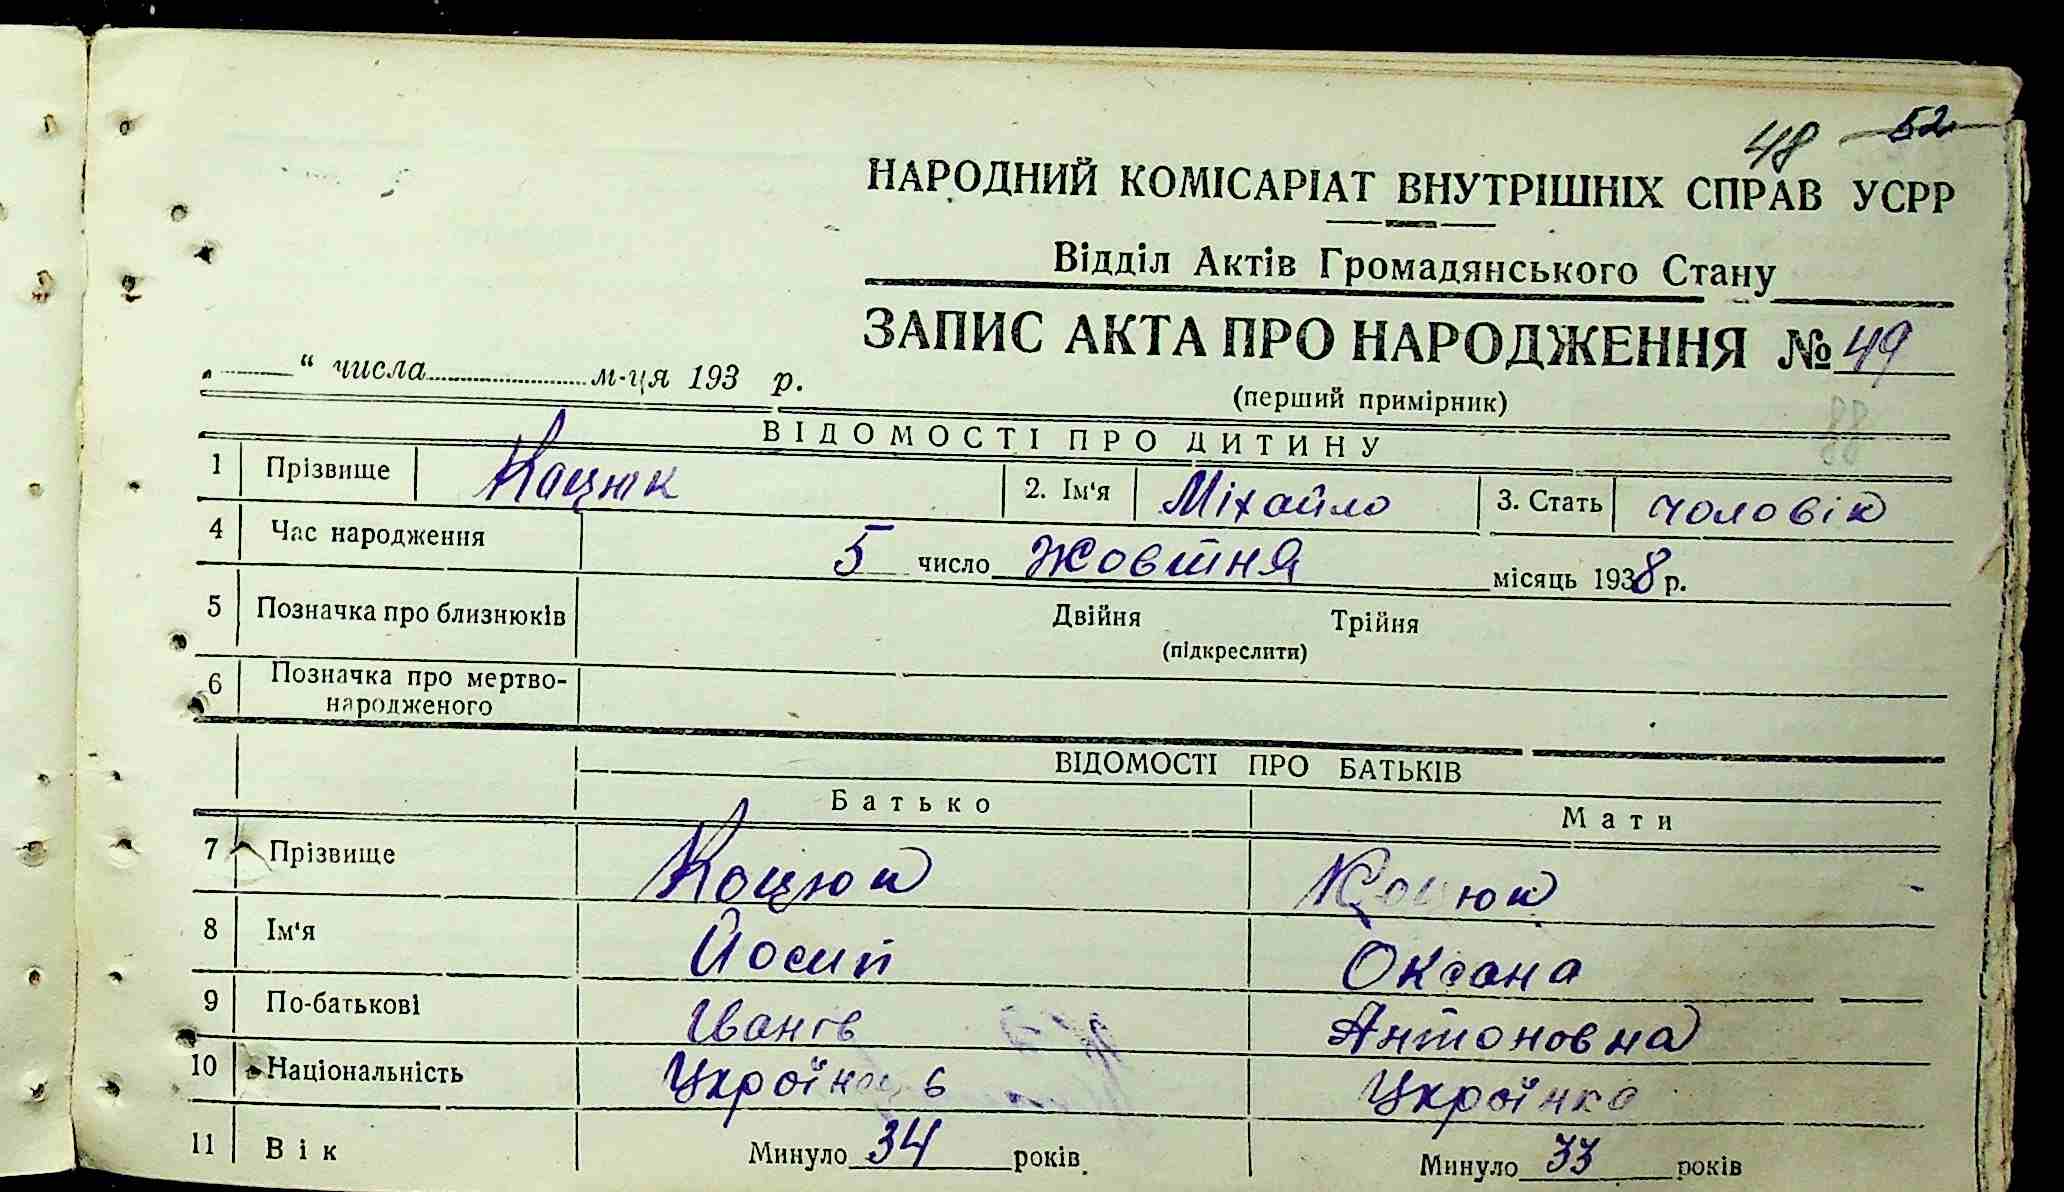 48 52
НАРОДНИЙ КОМІСАРІАТ ВНУТРІШНІХ СПРАВ УСРР
Відділ Актів Громадянського Стану
ЗАПИС АКТА ПРО НАРОДЖЕННЯ № 49
„ “ числа м-ця 193 р.
(перший примірник)
88
ВІДОМОСТІ ПРО ДИТИНУ
1 Прізвище Коцюк 2. Ім'я Міхайло 3. Стать чоловік
4 Час народження 5 число жовтня місяць 1938 р.
5 Позначка про близнюків Двійня Трійня
(підкреслити)
6 Позначка про мертво-
народженого
ВІДОМОСТІ ПРО БАТЬКІВ
Батько Мати
7 Прізвище Коцюк Коцюк
8 Ім'я Йосип Оксана
9 По-батькові Іванів Антоновна
10 Національність Українець Українка
11 Вік Минуло 34 років. Минуло 33 років